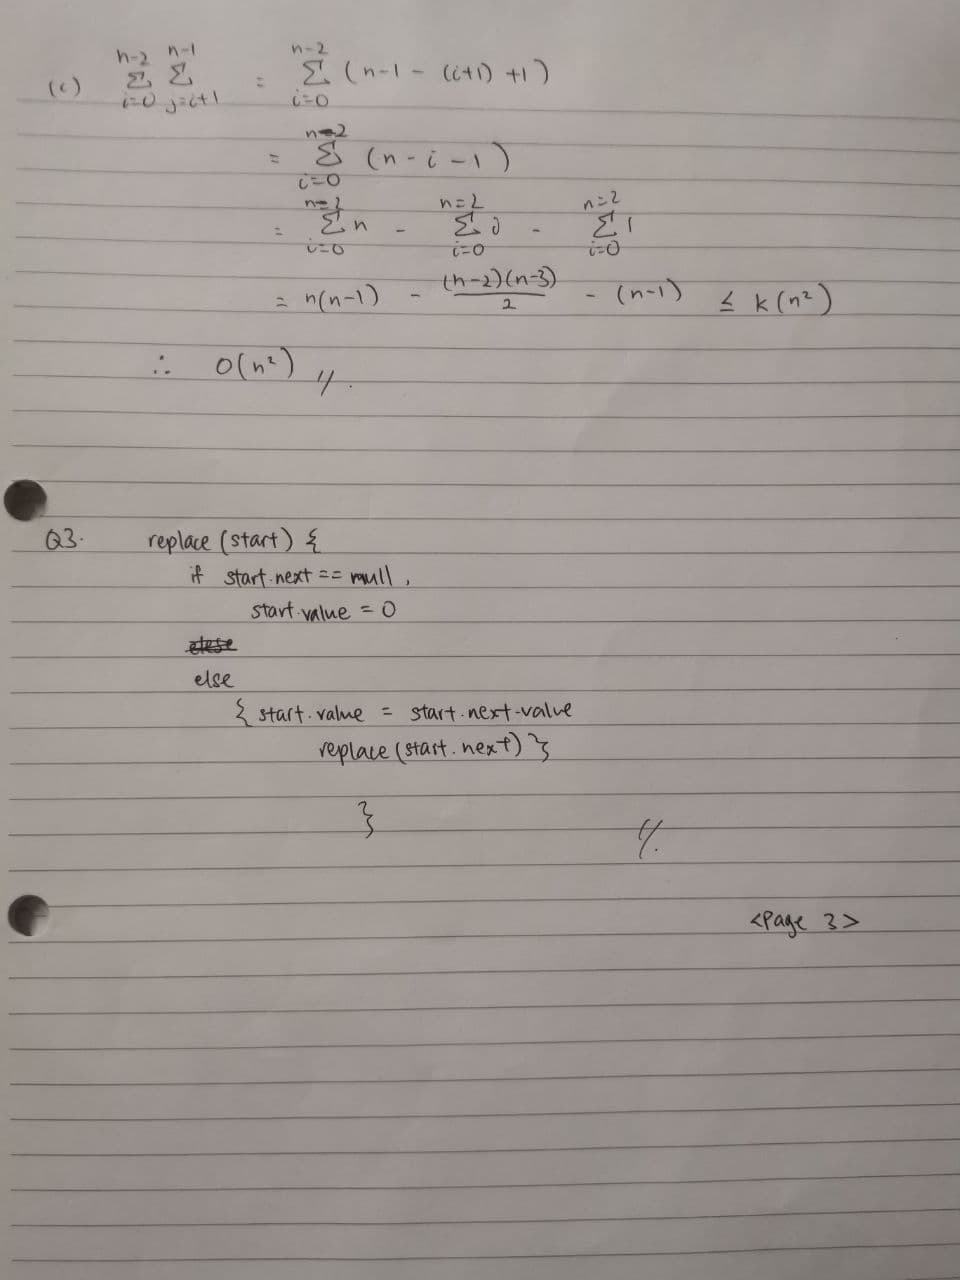 (c) n-2 Σ i=0 n-1 Σ j=i+1 = n-2 Σ i=0 (n-1 - (i+1) +1)
= n-2 Σ i=0 (n - i - 1)
= n-2 Σ i=0 n - n=2 Σ i=0 j - n=2 Σ i=0 1
= n(n-1) - (n-2)(n-3)/2 - (n-1) ≤ k(n²)
∴ O(n²) //.
Q3. replace (start) {
if start.next == null,
start.value = 0
else
{ start.value = start.next.value
replace (start.next) }
}
//.
<Page 3>